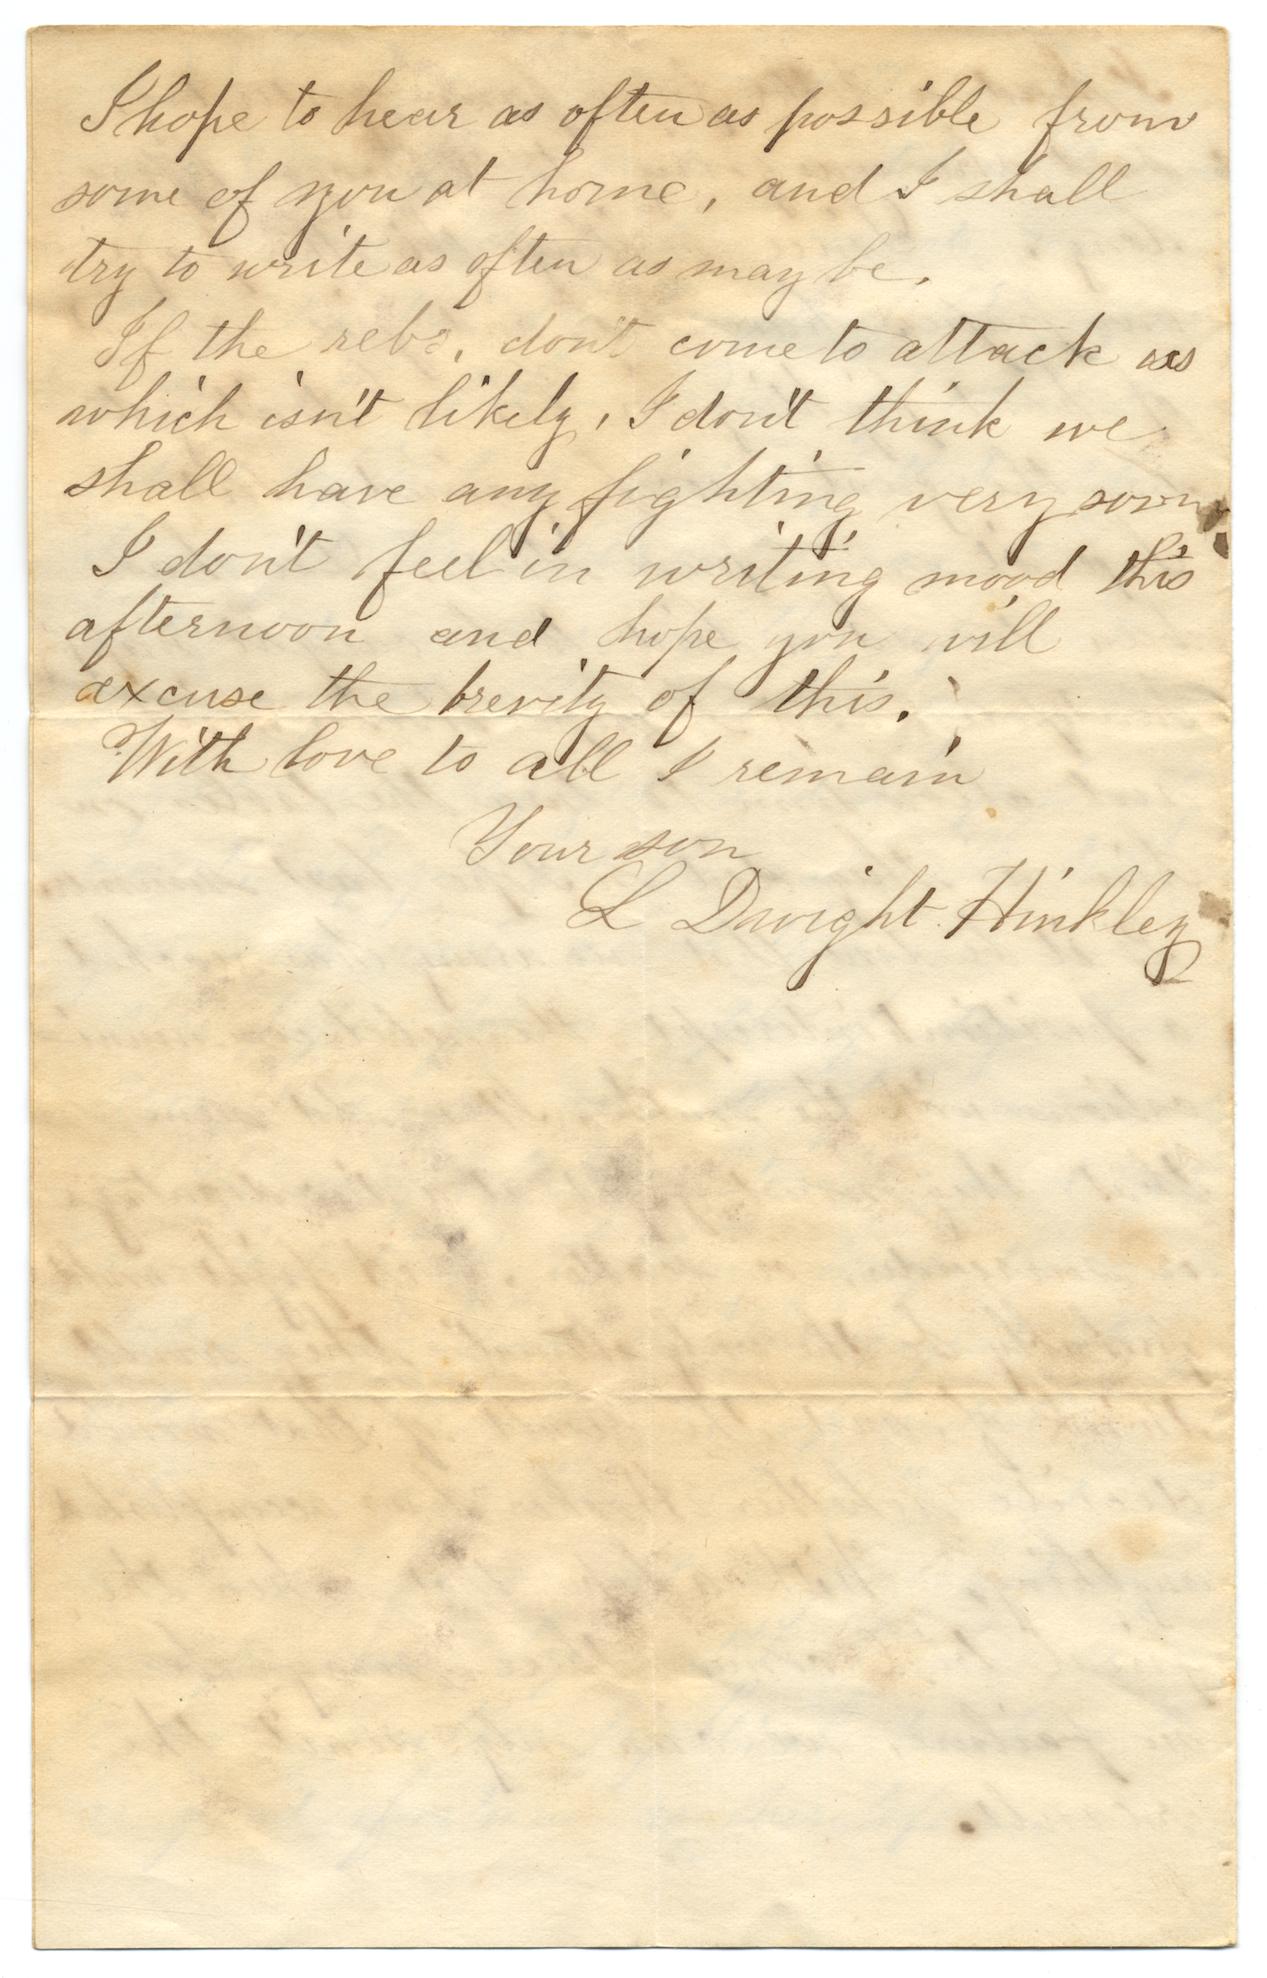 I hope to hear as often as possible from
some of you at home, and I shall
try to write as often as may be.
If the rebs, don't come to attack us
which isn't likely, I don't think we
shall have any fighting very soon
I don't feel in writing mood this
afternoon and hope you will
excuse the brevity of this.
With love to all I remain
Your son
L Dwight Hinkley